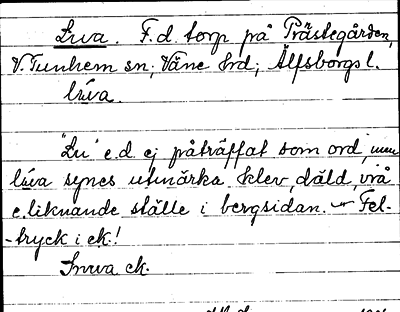 Luva. F.d. torp på Prästegården,
V. Tunhem sn; Väne hrd; Älfsborgs l.
lúva.
"Lu" e.d. ej påträffat som ord, men
lúva synes utmärka klev, däld, vrå
e. liknande ställe i bergsidan. Fel-
-tryck i ek!
Snuva ek.